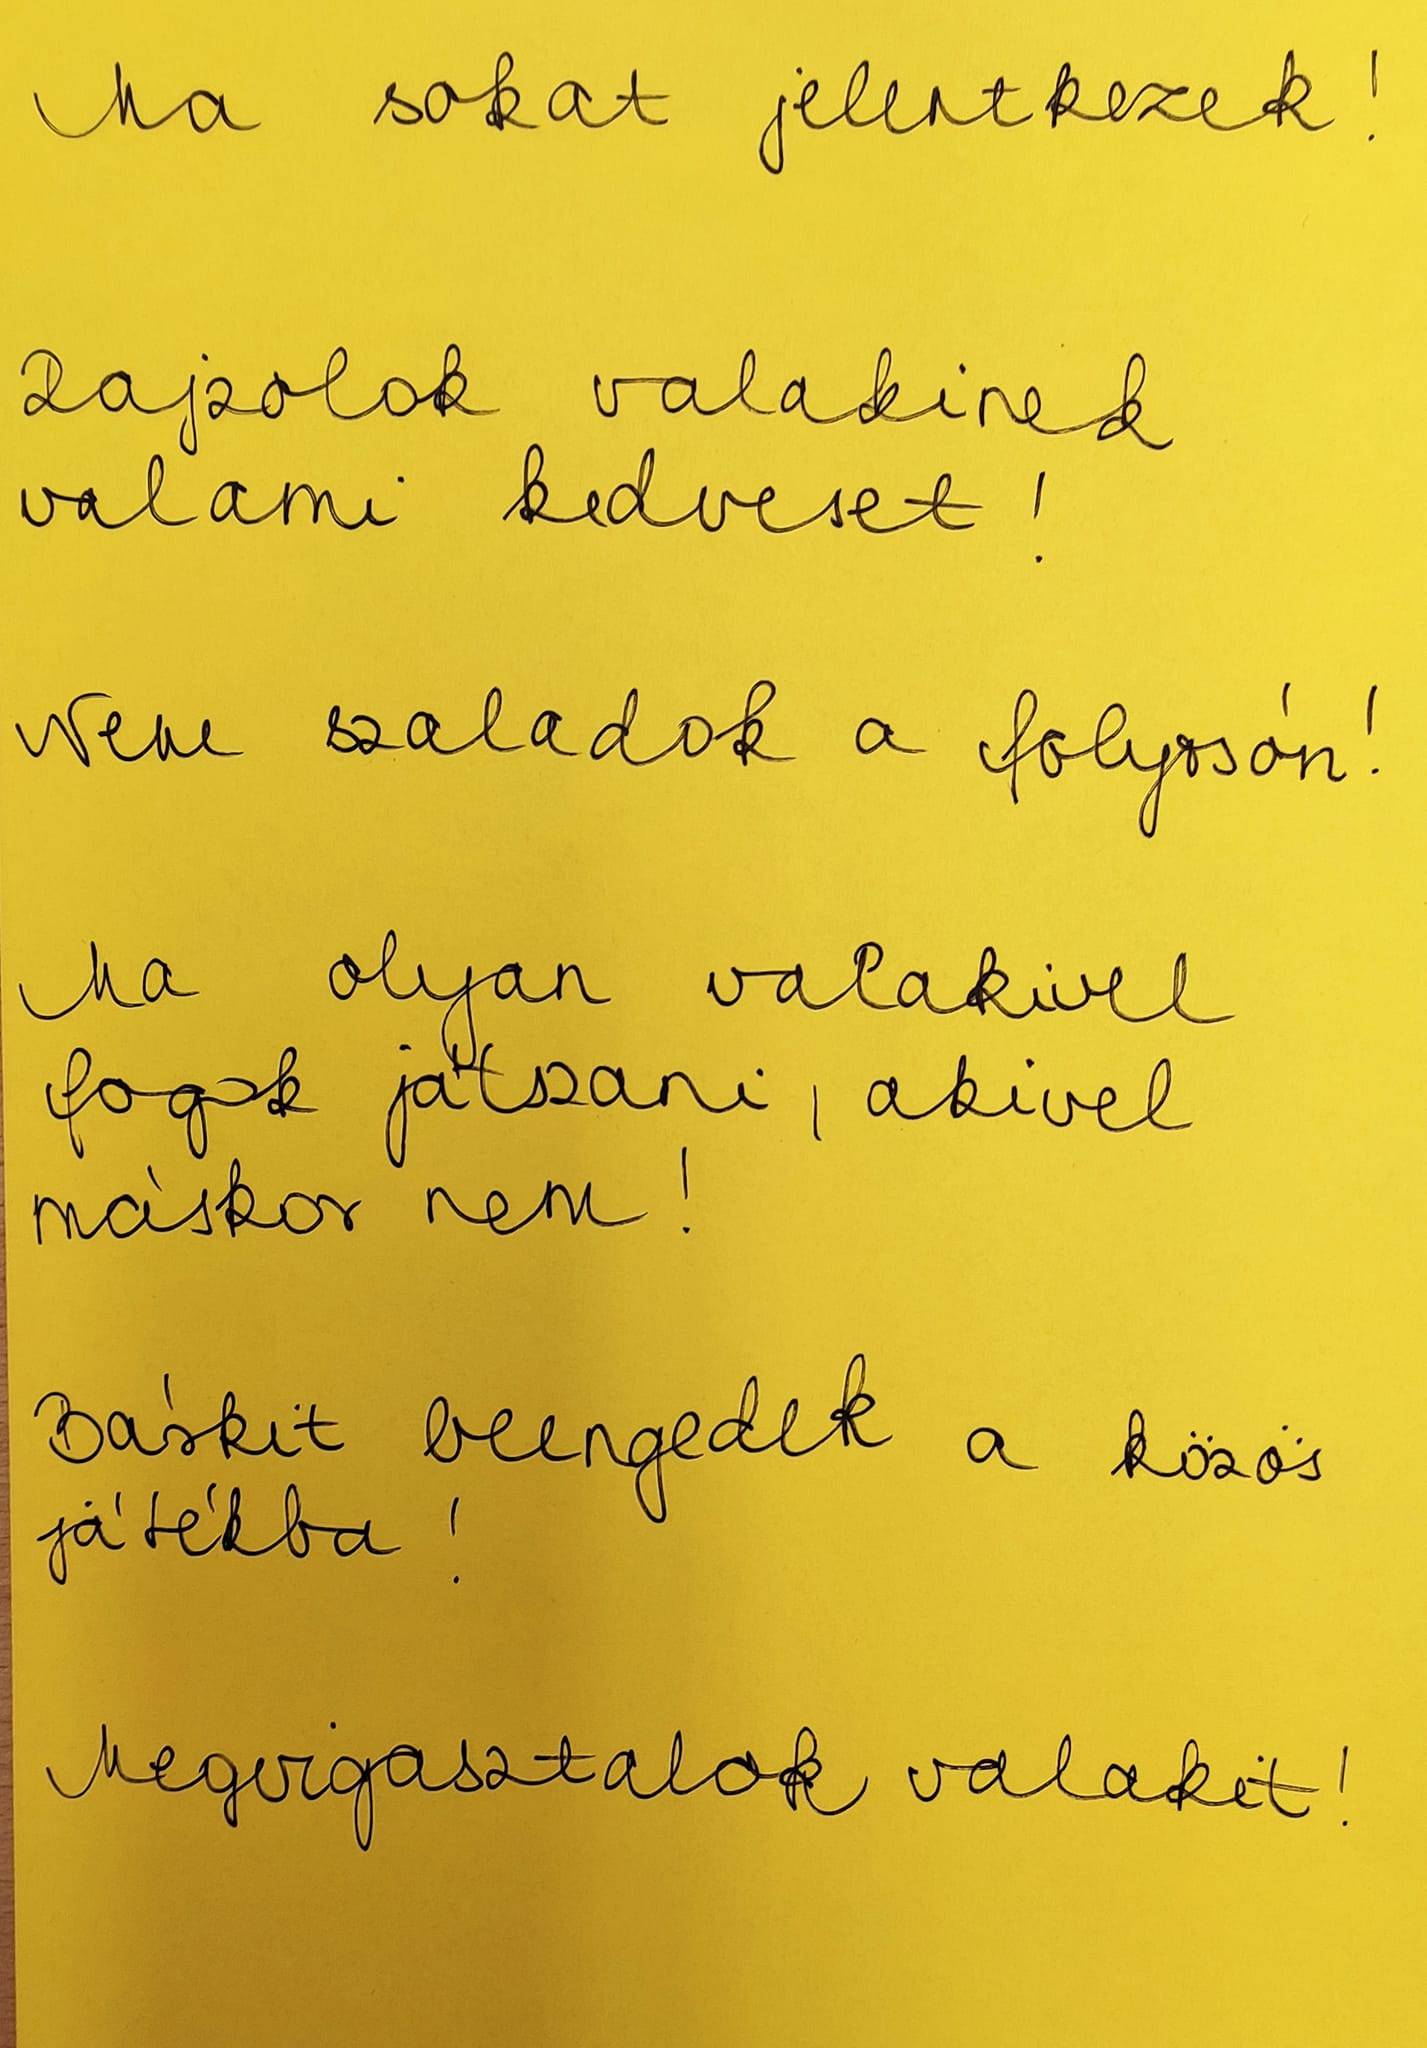 Ma sokat jelentkezek!
Rajzolok valakinek
valami kedveset!
Nem szaladok a folyosón!
Ma olyan valakivel
fogok játszani, akivel
máskor nem!
Bárkit beengedek a közös
játékba!
Megvigasztalok valakit!